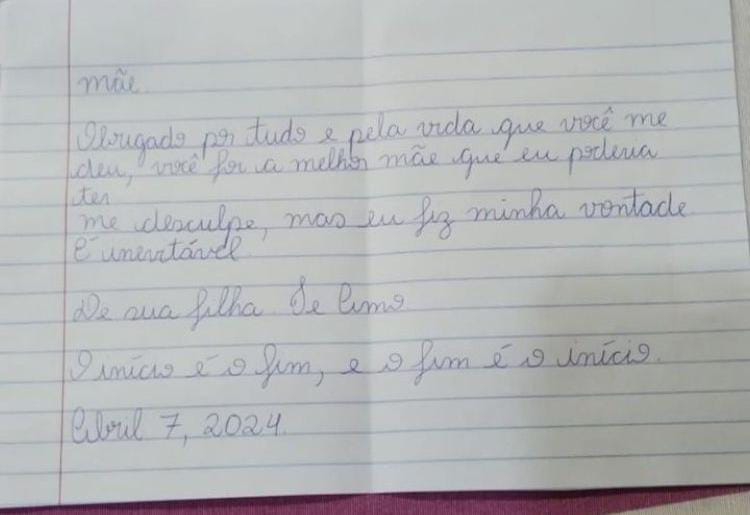 mãe
Obrugado por tudo e pela vida que você me
deu, você foi a melhor mãe que eu poderia
ter
me desculpe, mas eu fiz minha vontade
É inevitável
De sua filha. Te Amo
O início é o fim, e o fim é o início.
Abril 7, 2024.